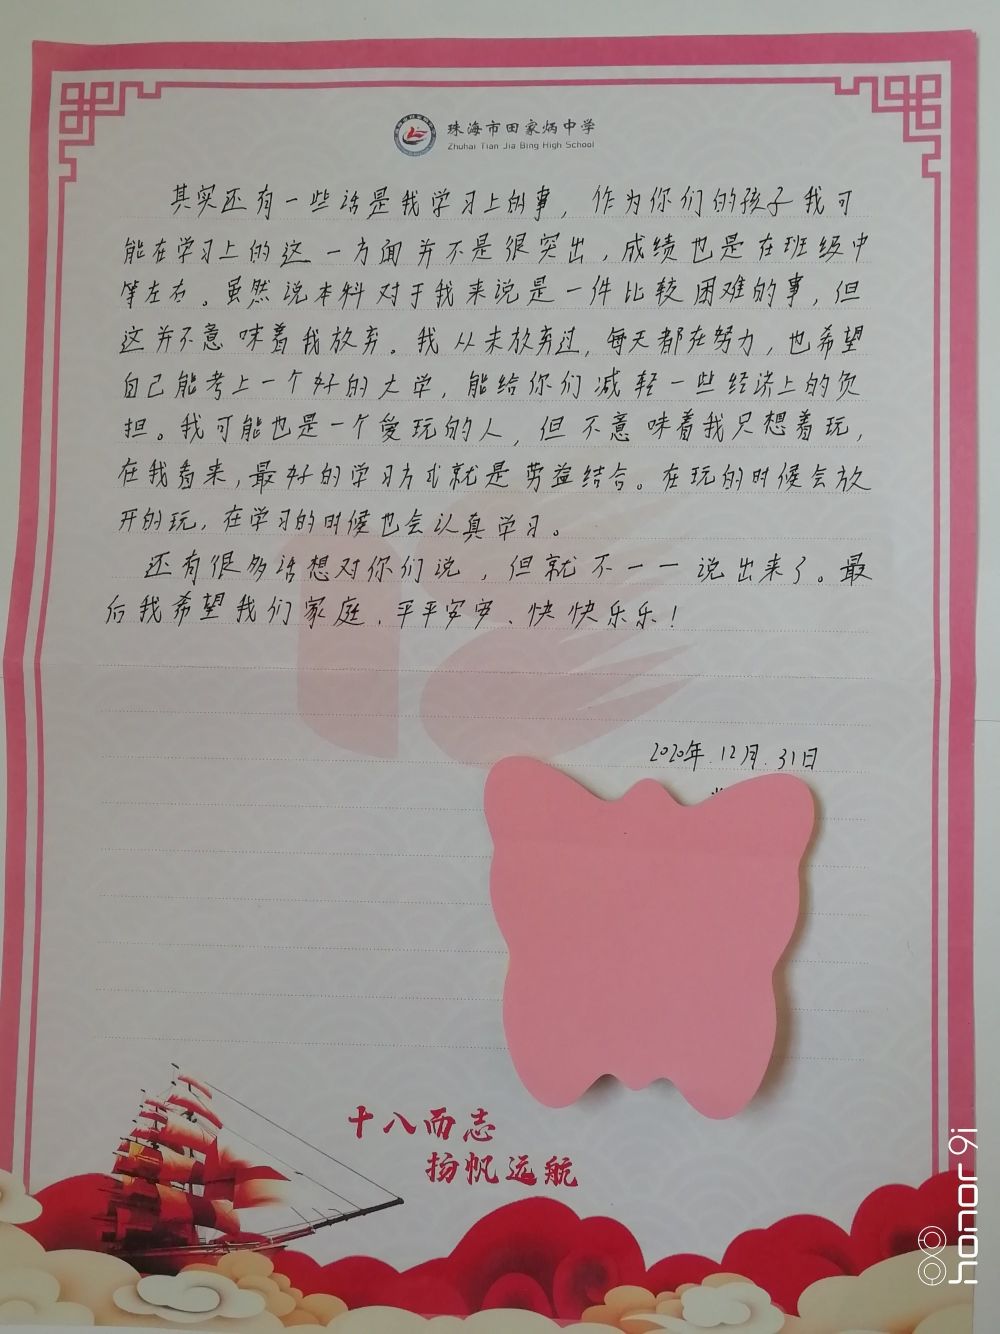 珠海市田家炳中学
Zhuhai Tian Jia Bing High School
其实还有一些话是我学习上的事，作为你们的孩子我可
能在学习上的这一方面并不是很突出，成绩也是在班级中
等左右。虽然说本科对于我来说是一件比较困难的事，但
这并不意味着我放弃。我从未放弃过，每天都在努力，也希望
自己能考上一个好的大学，能给你们减轻一些经济上的负
担。我可能也是一个爱玩的人，但不意味着我只想着玩，
在我看来，最好的学习方式就是劳益结合。在玩的时候会放
开的玩，在学习的时候也会认真学习。
还有很多话想对你们说，但就不一一说出来了。最
后我希望我们家庭、平平安安、快快乐乐！
2020年.12月.31日
十八而志
扬帆远航
honor 9i